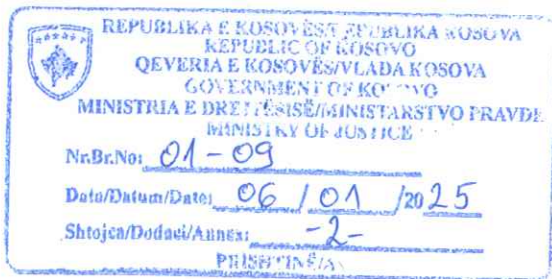 REPUBLIKA E KOSOVËS/REPUBLIKA KOSOVA
REPUBLIC OF KOSOVO
QEVERIA E KOSOVËS/VLADA KOSOVA
GOVERNMENT OF KOSOVO
MINISTRIA E DREJTËSISË/MINISTARSTVO PRAVDE
MINISTRY OF JUSTICE
Nr.Br.No: 01-09
Data/Datum/Date: 06 / 01 /2025
Shtojca/Dodaci/Annex: -2-
PRISHTINË/A